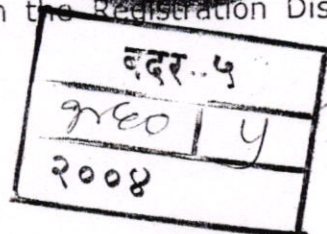 n the Registration Dis
वदर-५
५
२००४